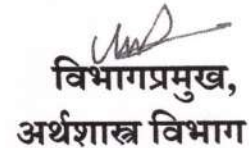 विभागप्रमुख,
अर्थशास्त्र विभाग